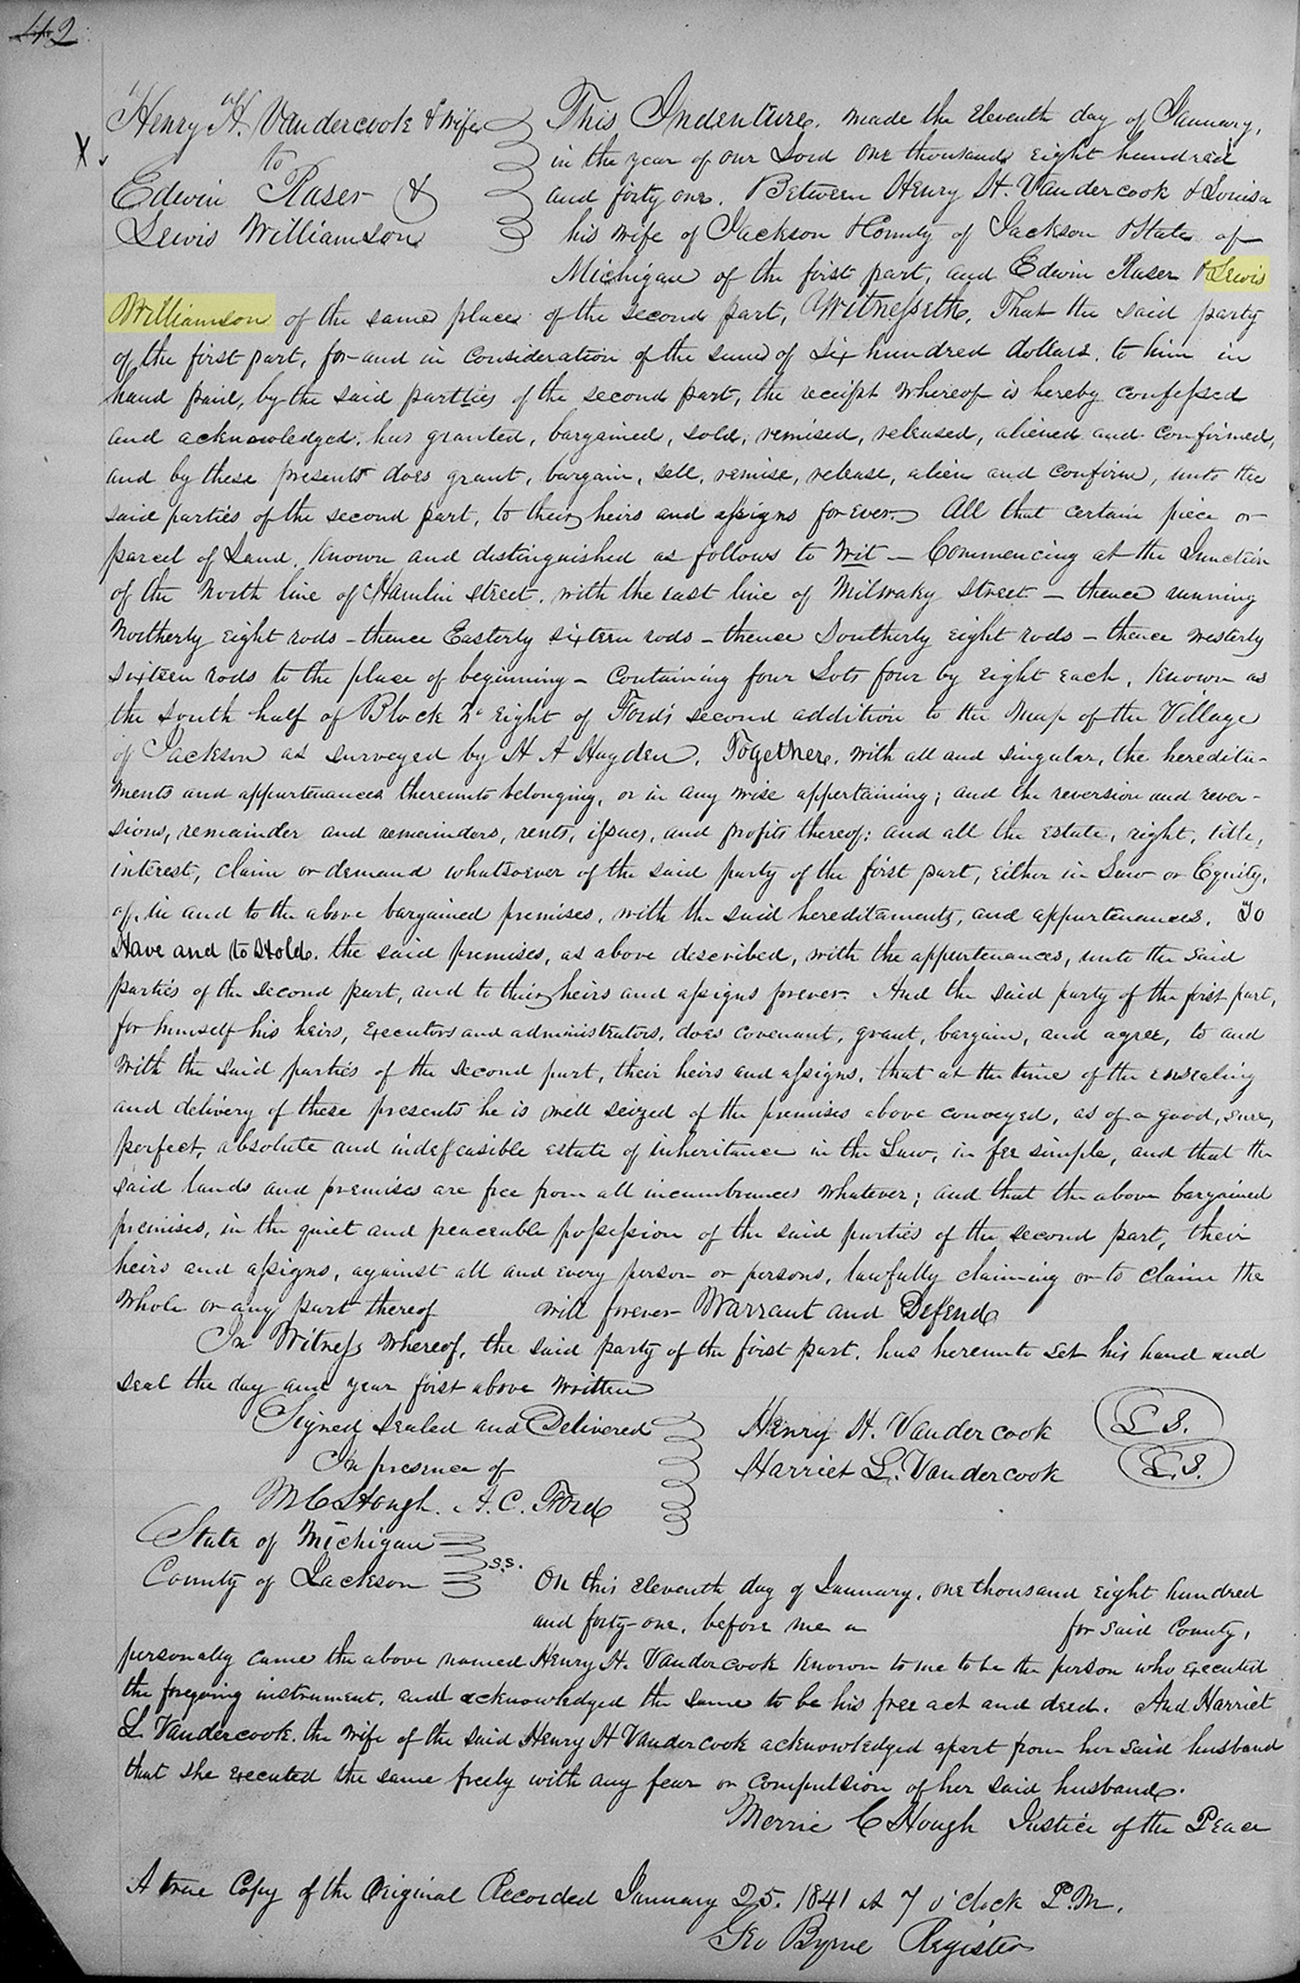 42
Henry H. Vandercook & Wife
to
Edwin Raser &
Lewis Williamson
X
This Indenture, made the Eleventh day of January,
in the year of our Lord One thousand eight hundred
and forty one. Between Henry H. Vandercook & Louisa
his wife of Jackson County of Jackson State of
Michigan of the first part, and Edwin Raser & Lewis
Williamson of the same place of the second part, Witnesseth, That the said party
of the first part, for and in consideration of the sum of six hundred dollars, to him in
hand paid, by the said partties of the second part, the receipt whereof is hereby confessed
and acknowledged, has granted, bargained, sold, remised, released, aliened and confirmed,
and by these presents does grant, bargain, sell, remise, release, alien and confirm, unto the
said parties of the second part, to their heirs and assigns forever. All that certain piece or
parcel of Land, known and distinguished as follows to Wit — Commencing at the Junction
of the North line of Hamlin street, with the east line of Milwaky street — thence running
Northerly eight rods – thence Easterly sixteen rods – thence Southerly eight rods – thence westerly
sixteen rods to the place of beginning – Containing four Lots four by eight each, known as
the south half of Block No eight of Ford's second addition to the Map of the Village
of Jackson as surveyed by H A Hayden. Together, with all and singular, the heredita-
ments and appurtenances thereunto belonging, or in any wise appertaining; and the reversion and rever-
sions, remainder and remainders, rents, issues, and profits thereof; and all the estate, right, title,
interest, claim or demand whatsoever of the said party of the first part, either in Law or Equity,
of, in and to the above bargained premises, with the said hereditaments, and appurtenances. To
Have and to Hold, the said premises, as above described, with the appurtenances, unto the said
parties of the second part, and to their heirs and assigns forever. And the said party of the first part,
for himself his heirs, executors and administrators, does covenant, grant, bargain, and agree, to and
with the said parties of the second part, their heirs and assigns, that at the time of the ensealing
and delivery of these presents he is well seized of the premises above conveyed, as of a good, sure,
perfect, absolute and indefeasible estate of inheritance in the Law, in fee simple, and that the
said lands and premises are free from all incumbrances whatever; and that the above bargained
premises, in the quiet and peaceable possession of the said parties of the second part, their
heirs and assigns, against all and every person or persons, lawfully claiming or to claim the
whole or any part thereof will forever Warrant and Defend
In Witness whereof, the said party of the first part, has hereunto set his hand and
seal the day and year first above written
Signed Sealed and Delivered
In presence of
M C Hough. A. C. Ford
Henry H. Vandercook L. S.
Harriet L. Vandercook L. S.
State of Michigan
County of Jackson
s.s.
On this eleventh day of January, one thousand eight hundred
and forty-one, before me a for said County,
personally came the above named Henry H. Vandercook known to me to be the person who executed
the foregoing instrument, and acknowledged the same to be his free act and deed. And Harriet
L Vandercook, the wife of the said Henry H Vandercook acknowledged apart from her said husband
that she executed the same freely with any fear or compulsion of her said husband.
Merrie C Hough Justice of the Peace
A true Copy of the Original Recorded January 25. 1841 at 7 o'clock P.M.
Geo Byrne Register